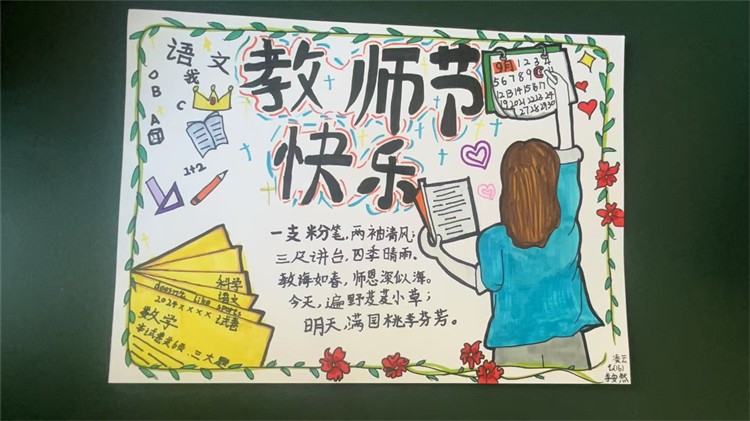 语文
我
O
B
C
A
团
1+2
教师节
快乐
9月 1 2 3 4
5 6 7 8 9
12 13 14 15 16 17
19 20 21 22 23 24
27 28 29 30
一支粉笔，两袖清风；
三尺讲台，四季晴雨、
教诲如春，师恩深似海。
今天，遍野芨芨小草；
明天，满园桃李芬芳。
科学
语文
doesn't like sports
2024××××试卷
数学
三大题
凌云
李安然